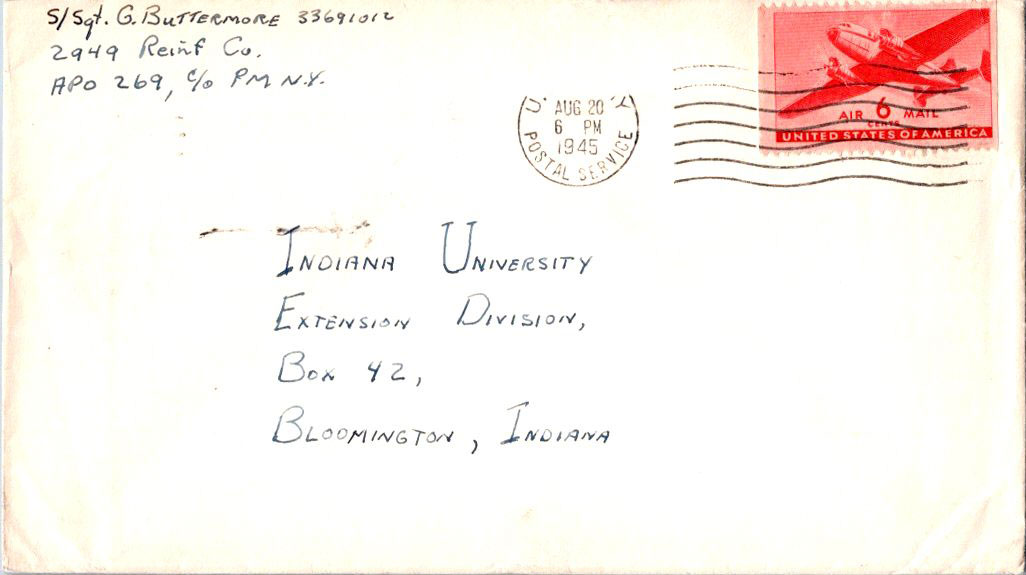 S/Sgt. G. BUTTERMORE 33691012
2949 Reinf Co.
APO 269, c/o PM N.Y.
AUG 20
6 PM
1945
POSTAL SERVICE
AIR 6 MAIL
CENTS
UNITED STATES OF AMERICA
INDIANA UNIVERSITY
EXTENSION DIVISION,
BOX 42,
BLOOMINGTON, INDIANA